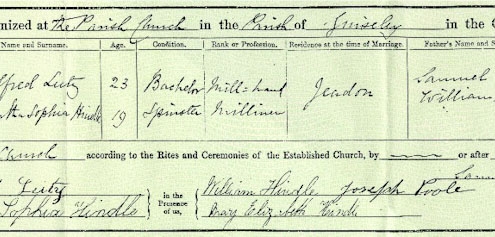 nized at the Parish Church in the Parish of Guiseley in the C
Name and Surname. Age. Condition. Rank or Profession. Residence at the time of Marriage. Father's Name and S
lfred Leity 23 Bachelor Mill-hand Yeadon Samuel
Sophia Hindle 19 Spinster Milliner William
Church according to the Rites and Ceremonies of the Established Church, by or after
Leity in the Presence of us, William Hindle Joseph Poole
Sophia Hindle Mary Elizabeth Hindle